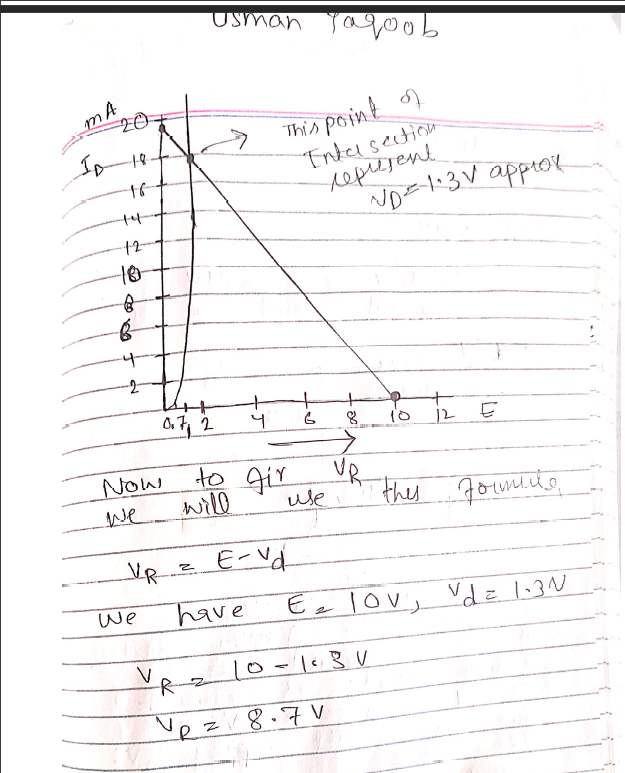 Usman Yaqoob
mA
20
I_D
18
16
14
12
10
8
6
4
2
This point of
Intersection
represent
V_D = 1.3V approx
0.7, 2 4 6 8 10 12 E
Now to gir V_R
we will use this formula
V_R = E - V_d
We have E = 10V, V_d = 1.3V
V_R = 10 - 1.3 V
V_R = 8.7 V